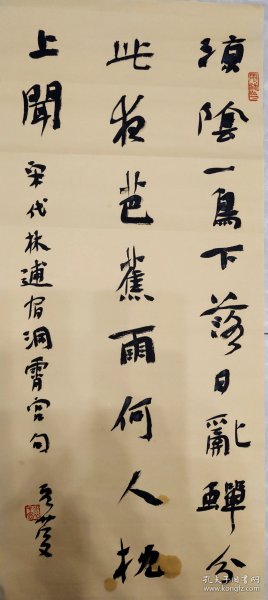 凉陰一鳥下落日亂蟬分
此夜芭蕉雨何人枕
上聞
宋代林逋宿洞霄宮句
孔夫子旧书网